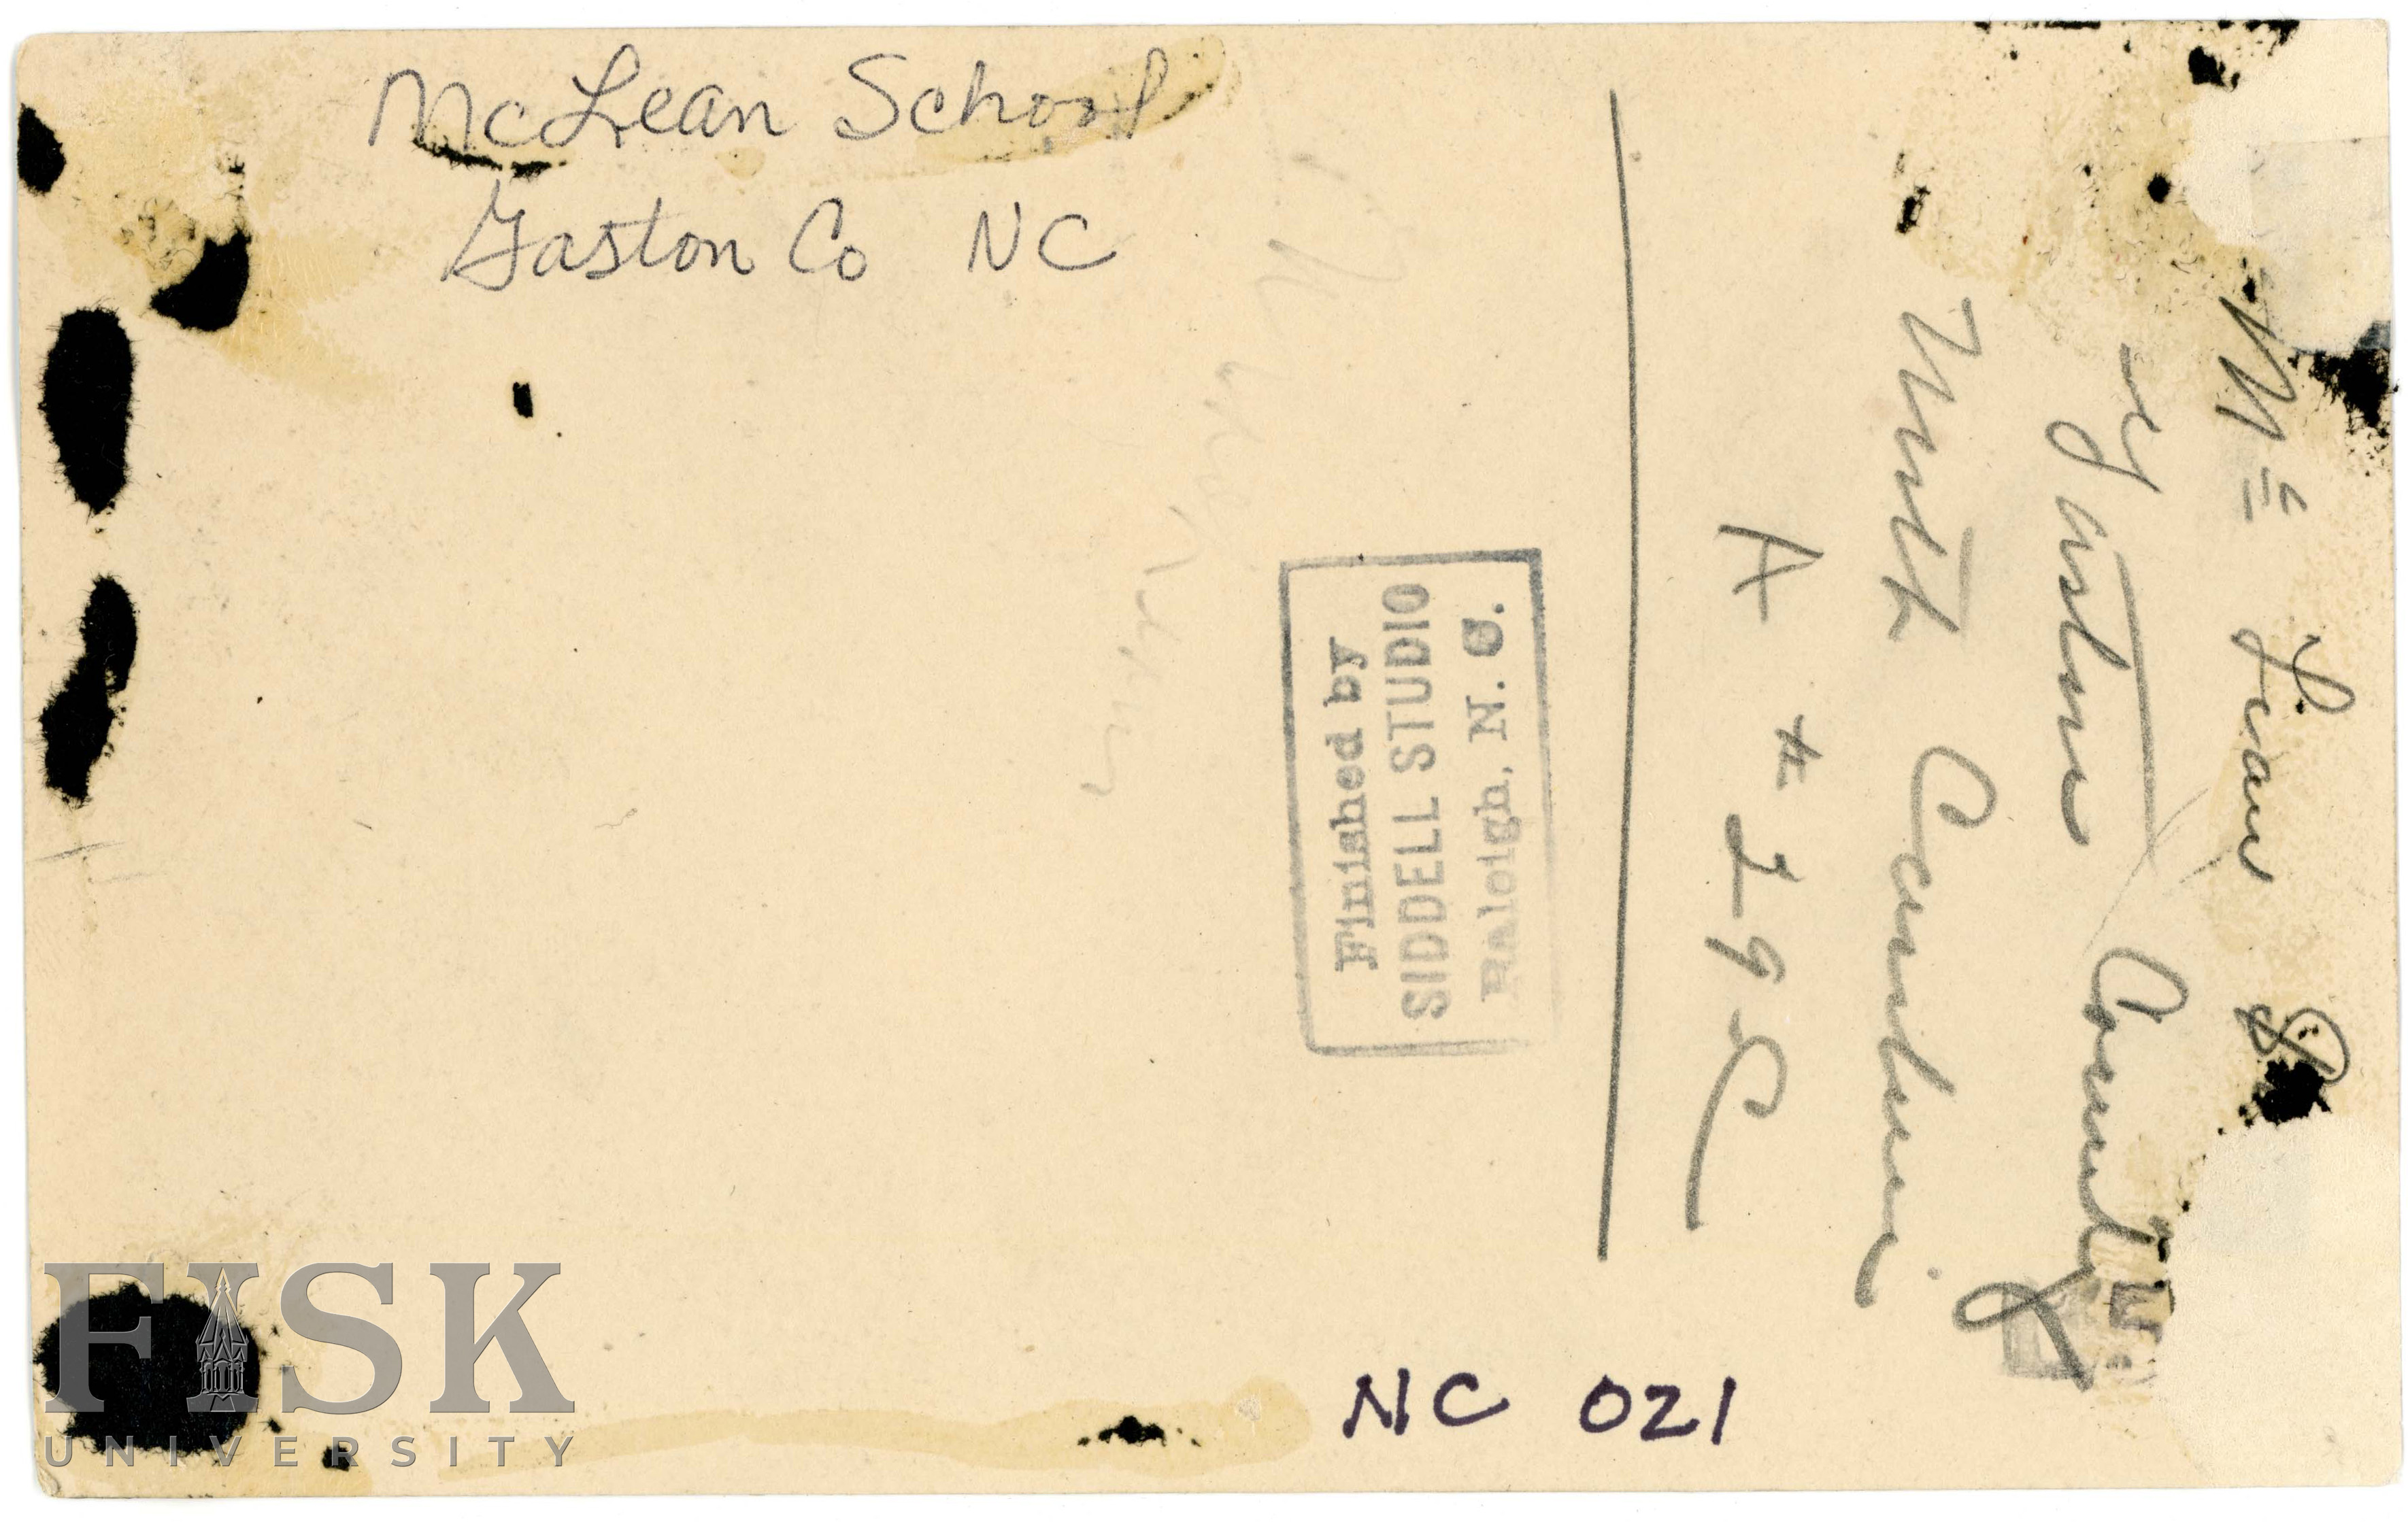 McLean School
Gaston Co NC
Mc Lean S
Gaston County
North Carolina
A # 29 C
Finished by
SIDDELL STUDIO
Raleigh, N. C.
NC 021
FISK
UNIVERSITY